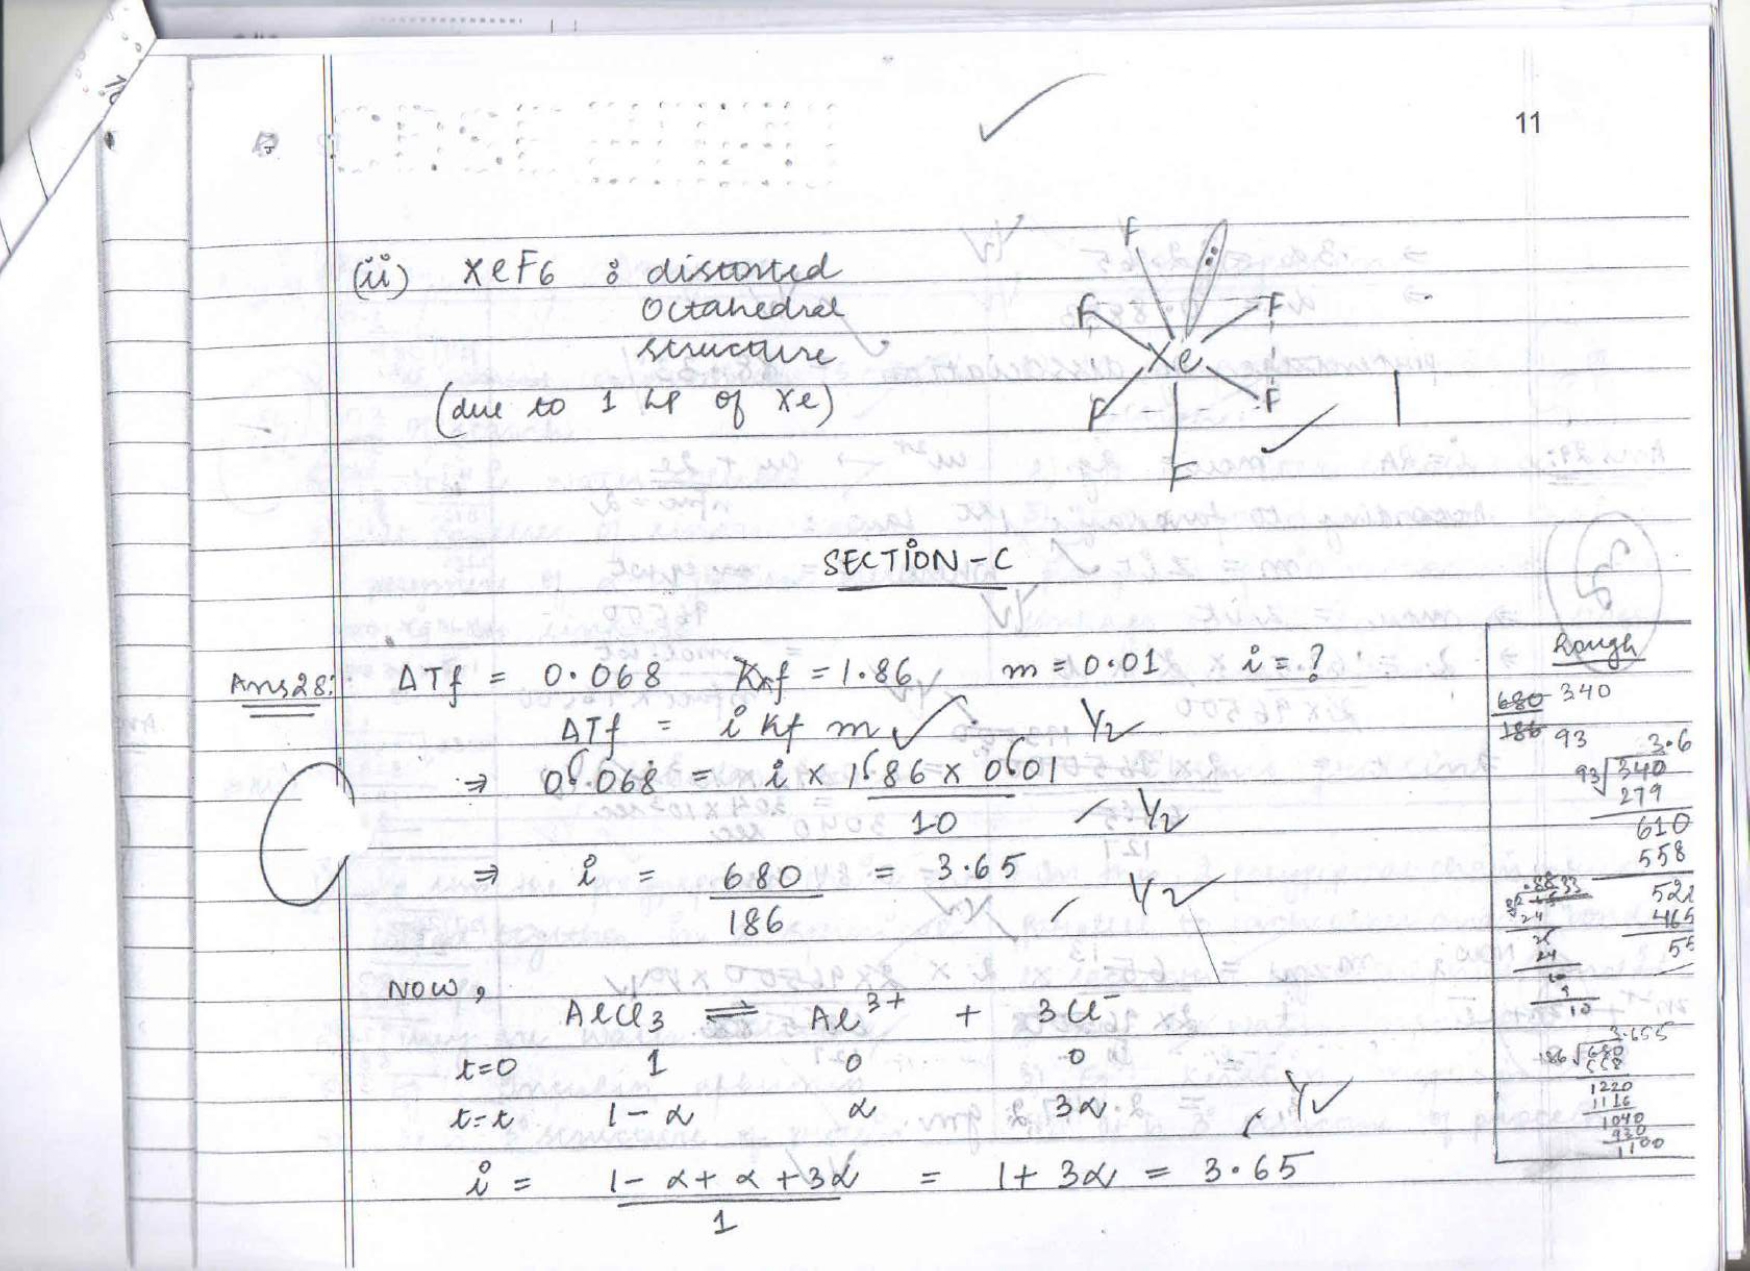 11
(ii) XeF6 : distorted
Octahedral
structure
(due to 1 LP of Xe)
F
F
F
Xe
F
F
F
1
SECTION - C
3
Rough
Ans 28: ΔTf = 0.068 Kf = 1.86 m = 0.01 i = ?
ΔTf = i Kf m 1/2
⇒ 0.068 = i × 1.86 × 0.01
10 1/2
⇒ i = 680/186 = 3.65 1/2
Now,
AlCl3 ⇌ Al3+ + 3Cl-
t=0 1 0 0
t=t 1-α α 3α 1/2
i = (1-α+α+3α)/1 = 1+3α = 3.65
680 340
186 93
3.6
93 340
279
610
558
522
465
3.655
186 680
558
1220
1116
1040
930
1100